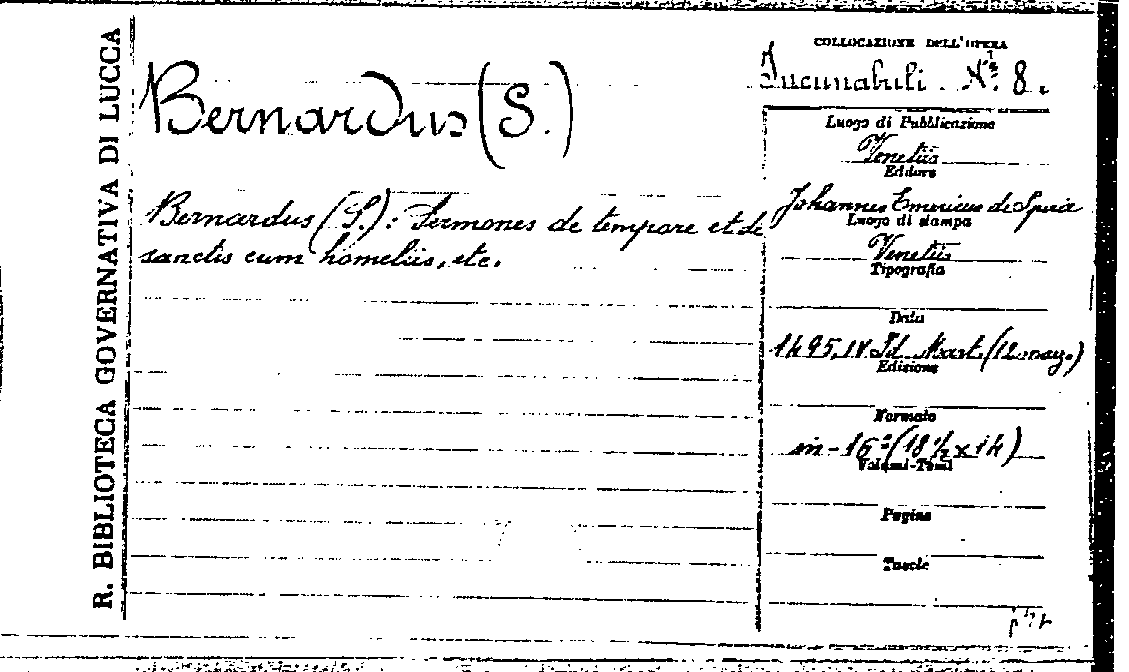 R. BIBLIOTECA GOVERNATIVA DI LUCCA
Bernardus (S.)
Bernardus (S.): Sermones de tempore et de
sanctis cum homeliis, etc.
COLLOCAZIONE DELL'OPERA
Incunabuli N.° 8.
Luogo di Pubblicazione
Venetiis
Editore
Johannes Emericus de Spira
Luogo di stampa
Venetiis
Tipografia
Data
1495, IV Id. Mart. (12 marz.)
Edizione
Formato
in-16° (18½ x 14)
Volumi-Tomi
Pagine
Tavole